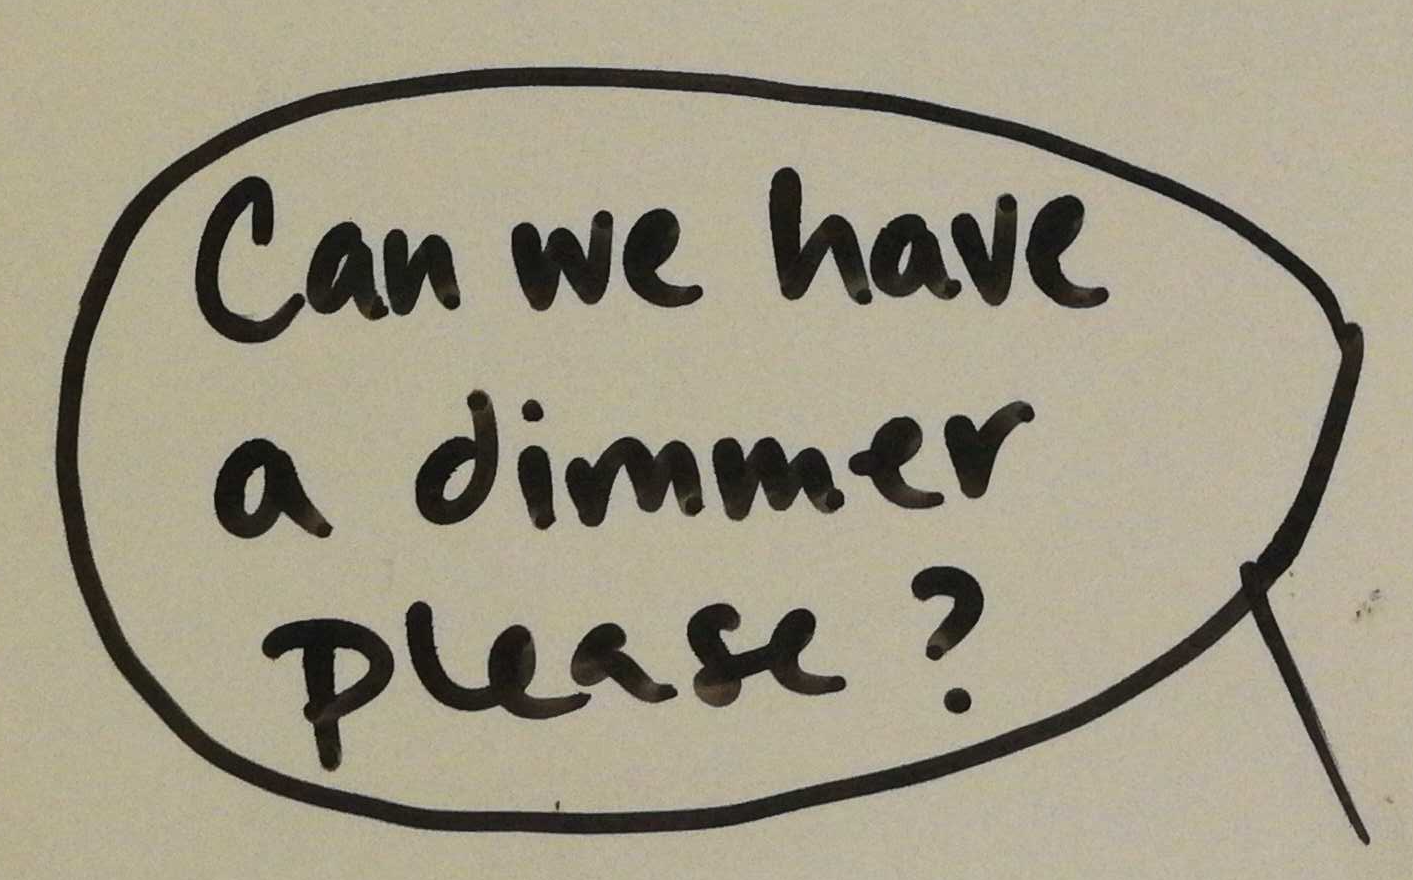 Can we have
a dimmer
please?